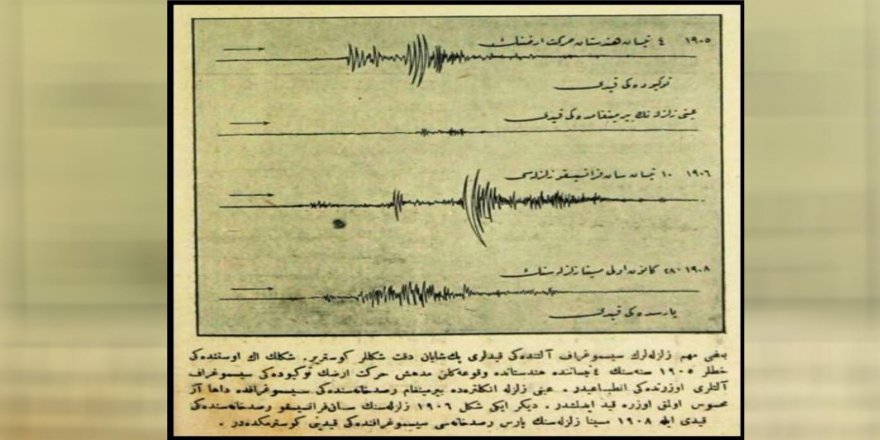 ١٩٠٥ ٤ نیسان هندستان حرکت ارضنك
توکیوده کی قیدی
عینی زلزله نك بیرمینغامده کی قیدی
١٩٠٦ ١٠ نیسان سان فرانسیسقو زلزله سی
١٩٠٨ - ٢٨ کانون اول مسینا زلزله سنك
پارسده کی قیدی
بعض مهم زلزله لرك سیسموغراف آلتنده کی قیدلری پك شایان دقت شکللر کوستریر. شکلك اك اوستنده کی
خطلر ١٩٠٥ سنه سنك ٤ نیساننده هندستانده وقوعه کلن مدهش حرکت ارضك توکیوده کی سیسموغراف
آلتلری اوزرنده کی انطباعیدر. عینی زلزله انکلترەده بیرمینغام رصدخانه سنده کی سیسموغرافده داها آز
محسوس اولمق اوزره قید ایدلمشدر. دیکر ایکی شکل ١٩٠٦ زلزله سنك سان فرانسیسقو رصدخانه سنده کی
قیدی ایله ١٩٠٨ مسینا زلزله سنك پارس رصدخانه سی سیسموغرافنده کی قیدینی کوسترمکده در.